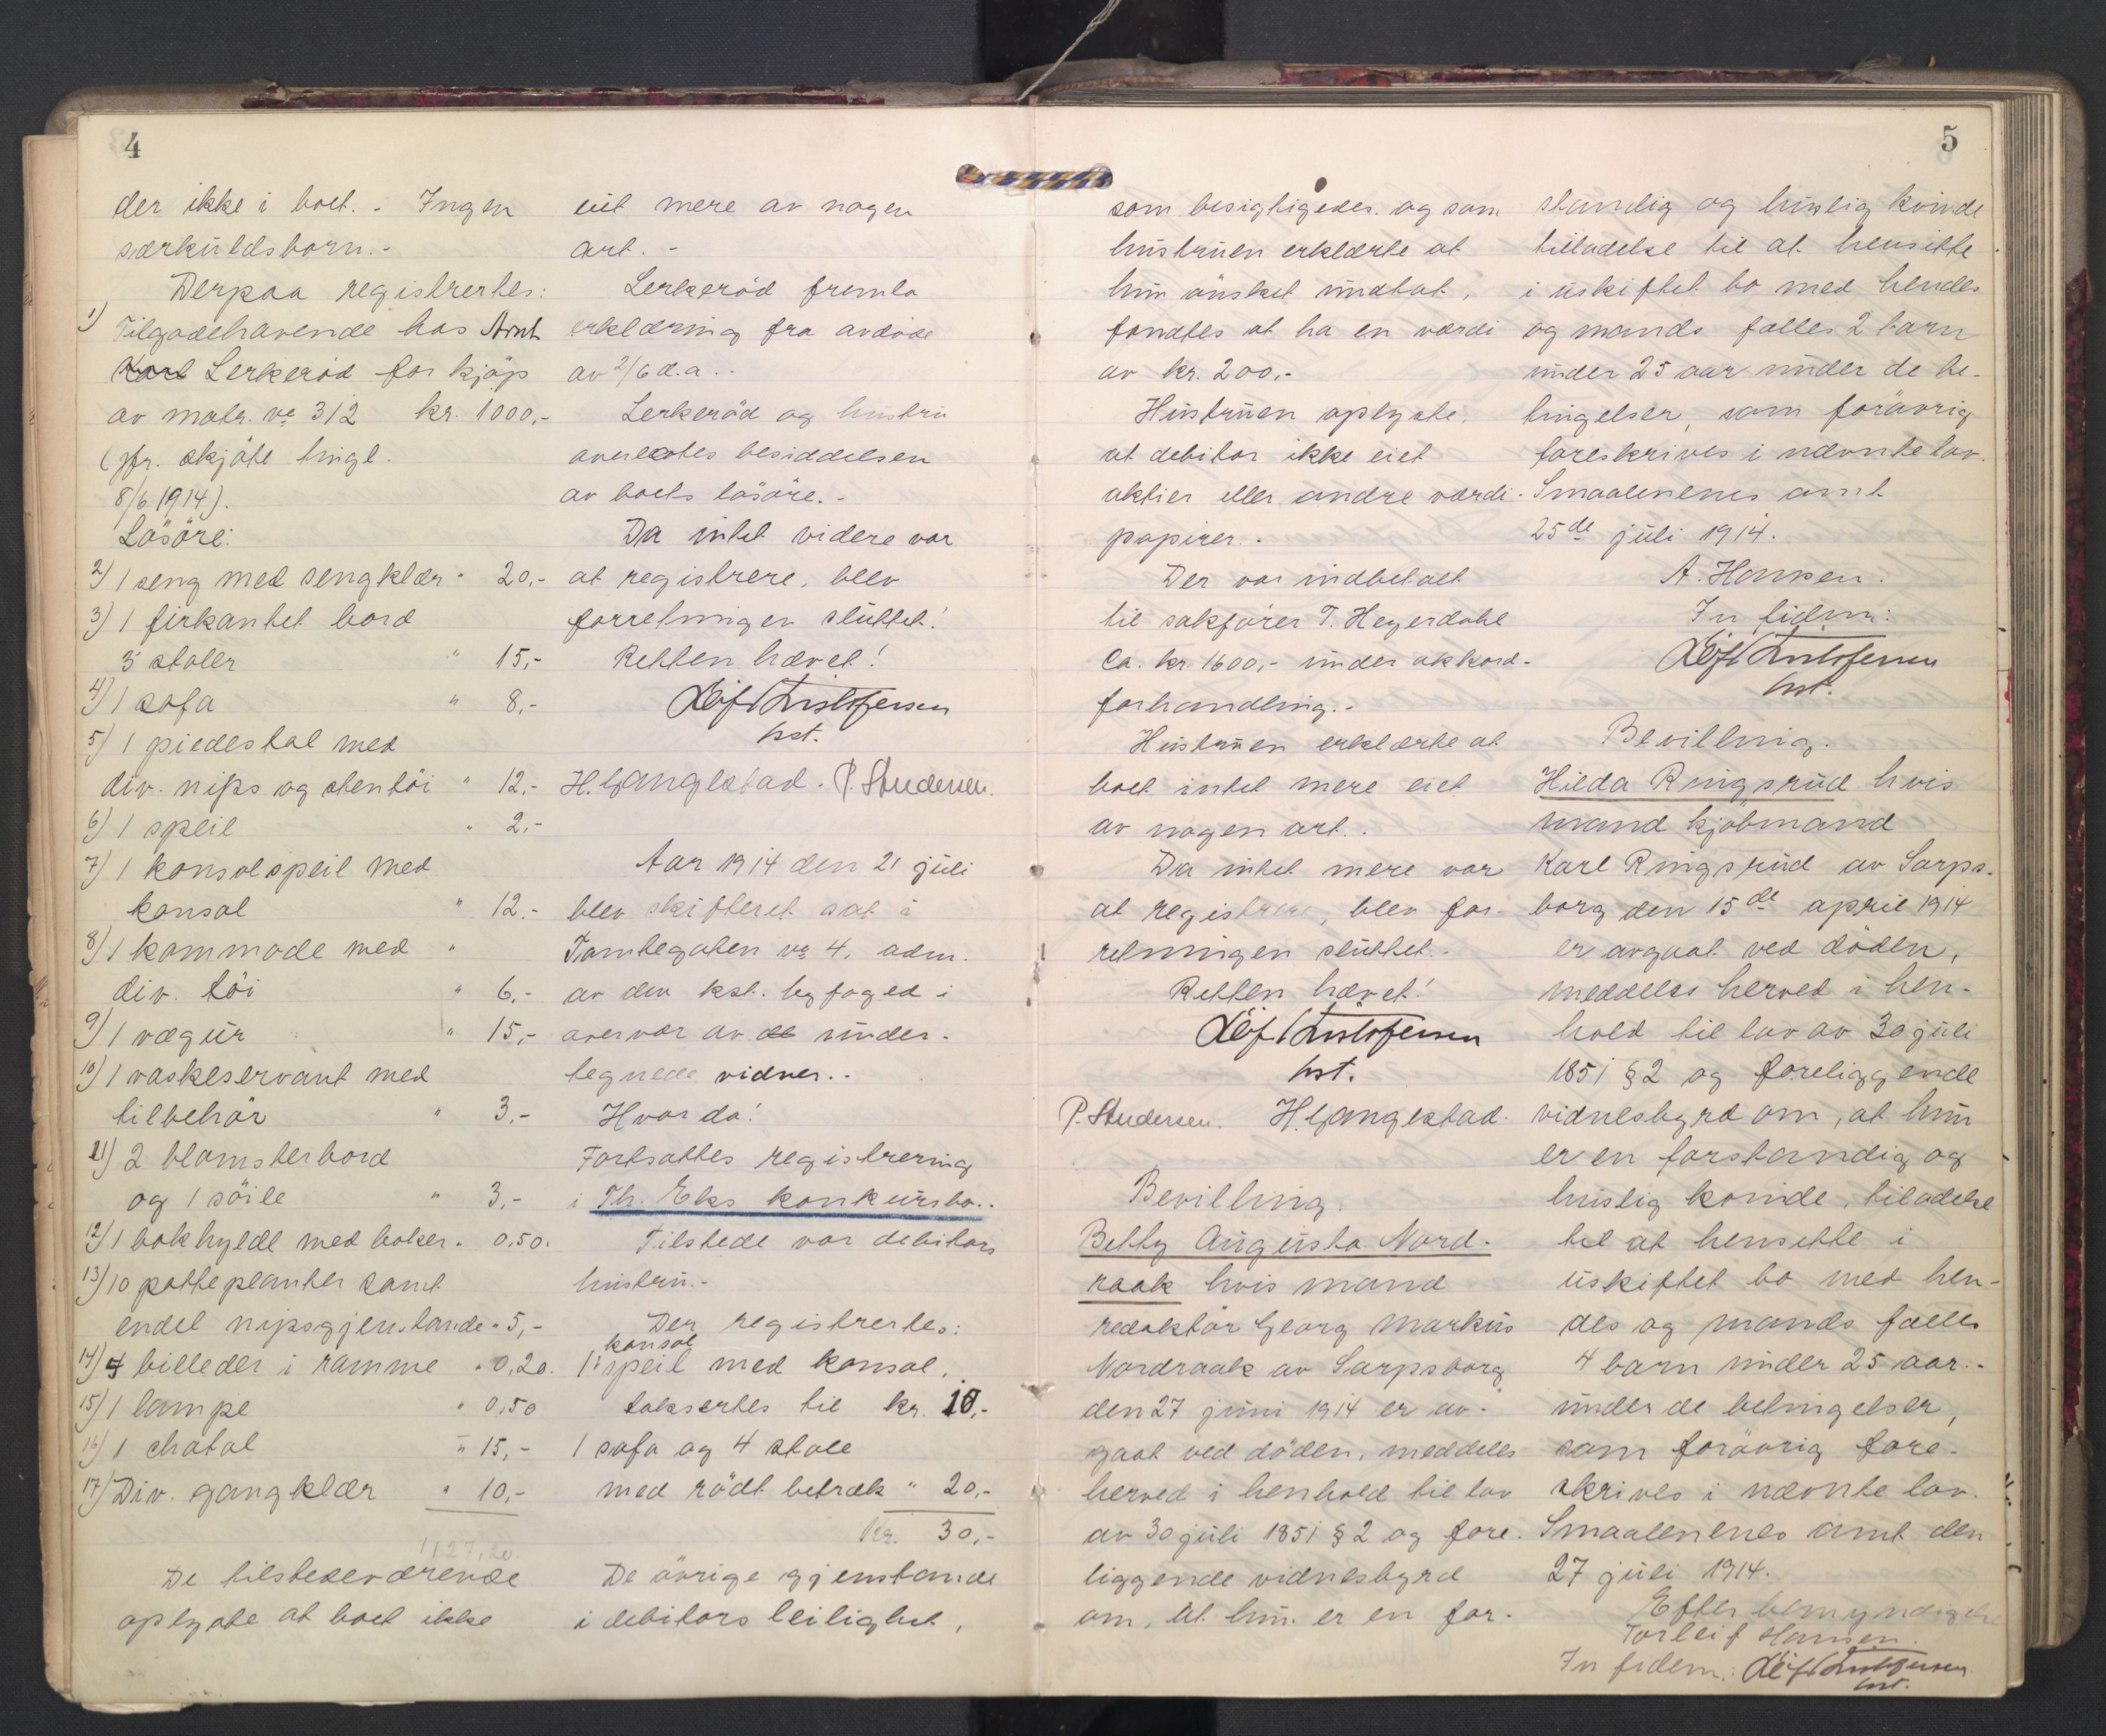 4
der ikke i boet. - Ingen
særkuldsbørn.-
Derpaa registrertes:
1) Tilgodehavende hos Arnt
Karl Lerkeröd for kjöp
av matr. no 312 kr. 1000,-
(jfr. skjöte tingl.
8/6 1914).
Lösöre:
2) 1 seng med sengklær " 20,-
3) 1 firkantet bord
3 stoler " 15,-
4) 1 sofa " 8,-
5) 1 piedestal med
div. nips og stentöi " 12,-
6) 1 speil " 2,-
7) 1 konsolspeil med
konsol " 12.-
8) 1 kommode med "
div. töi " 6,-
9) 1 vægur " 15,-
10) 1 vaskeservant med
tilbehör " 3,-
11) 2 blomsterbord
og 1 söile " 3,-
12) 1 bokhylde med böker " 0,50.
13) 10 potteplanter samt
endel nipsgjenstande " 5,-
14) 4 billeder i ramme " 0,20.
15) 1 lampe " 0,50
16) 1 chatol " 15,-
17) Div. gangklær " 10,-
1127,20.
De tilstedeværende
oplyste at boet ikke
eiet mere av nogen
art. -
Lerkeröd fremla
erklæring fra avdöde
av 2/6 d.a..
Lerkeröd og hustru
overlotes besiddelsen
av boets lösöre.-
Da intet videre var
at registrere, blev
forretningen sluttet!
Retten hævet!
Leif Kristofersen
kst.
H. Gangestad. P. Studersen.
Aar 1914 den 21 juli
blev skifteret sat i
Tombegaten no 4, adm.
av den kst. byfoged i
overvær av de under-
tegnede vidner..
Hvor da!
Fortsattes registrering
i Th. Eks konkursbo..
Tilstede var debitors
hustru.-
Der registrertes:
konsol
1 speil med konsol,
taksertes til kr. 10,-
1 sofa og 4 stole
med rödt betræk " 20,-
Kr. 30,-
De övrige gjenstande
i debitors leilighet,
5
som besigtigedes og som
hustruen erklærte at
hun önsket undtat,
fondtes at ha en værdi
av kr. 200,-
Hustruen oplyste,
at debitor ikke eiet
aktier eller andre værdi-
papirer.-
Der var indbetalt
til sakförer T. Heyerdahl
Ca. kr. 1600,- under akkord-
forhandling.-
Hustruen erklærte at
boet intet mere eiet
av nogen art..
Da intet mere var
at registrere, blev for-
retningen sluttet.-
Retten hævet!
Leif Kristofersen
kst.
P. Studersen. H. Gangestad.
Bevilling.
Betty Augusta Nord-
raak hvis mand
redaktör Georg Markus
Nordraak av Sarpsborg
den 27 juni 1914 er av-
gaat ved döden, meddeles
herved i henhold til lov
av 30 juli 1851 § 2 og fore-
liggende vidnesbyrd
om, at hun er en for-
standig og huslig kvinde
tilladelse til at hensitte
i uskiftet bo med hendes
og mands fælles 2 barn
under 25 aar under de be-
tingelser, som forövrig
foreskrives i nævnte lov.
Smaalenenes amt
25de juli 1914.
A. Hansen.
In fidem:
Leif Kristofersen
kst.
Bevilling.
Hilda Ringsrud hvis
mand kjöbmand
Karl Ringsrud av Sarps-
borg den 15de april 1914
er avgaat ved döden,
meddeles herved i hen-
hold til lov av 30 juli
1851 § 2 og foreliggende
vidnesbyrd om, at hun
er en forstandig og
huslig kvinde, tiladelse
til at hensitte i
uskiftet bo med hen-
des og mands fælles
4 barn under 25 aar.-
under de betingelser,
som forövrig fore-
skrives i nævnte lov.
Smaalenenes amt den
27 juli 1914.
Efter bemyndigelse
Torleif Hansen.
In fidem: Leif Kristofersen
kst.